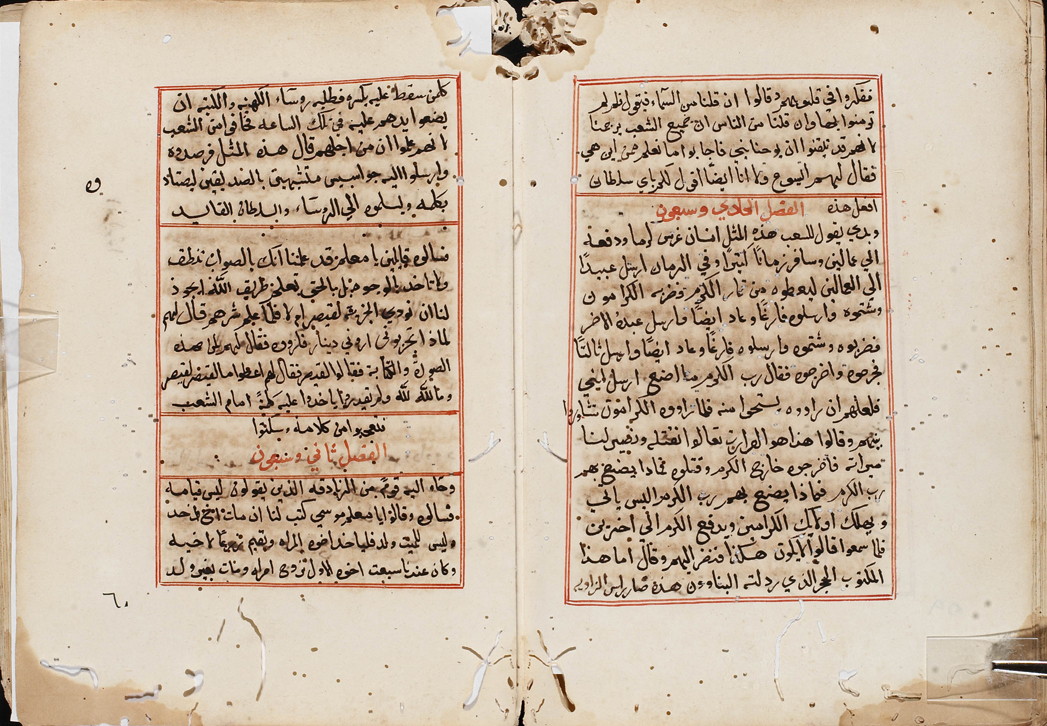 ففكروا في قلوبهم وقالوا ان قلنا من السماء فيقول لنا لم
تومنوا بها وان قلنا من الناس ان جميع الشعب يرجمنا
لانهم قد تيقنوا ان يوحنا نبي فاجابوا ما نعلم من اين هي
فقال لهم ايسوع ولا انا ايضا اقول لكم باي سلطان
افعل هذه الفصل الحادي وسبعون
وبدي يقول للشعب هذه المثل انسان غرس كرما ودفعة
الي عمالين وسافر زمانا كثيرا وفي الزمان ارسل عبيدا
الي العمالين ليعطوه من ثمار الكرم فضربه الكرامون
وشتموه وارسلوه فارغا وعاد ايضا وارسل عبده الاخر
فضربوه وشتموه وارسلوه فارغا وعاد ايضا وارسل ثالثا
فجرحوه واخرجوه فقال رب الكرم ما اصنع ارسل ابني
فلعلهم ان راووه يستحوا منه فلما راووه الكرامون تشاوروا
بينهم وقالوا هذا هو الوارث تعالوا نقتله ويصير لنا
ميراثه فاخرجوه خارج الكرم وقتلوه فماذا يصنع بهم
رب الكرم فماذا يصنع بهم رب الكرم اليس ياتي
ويهلك اوليك الكرامين ويدفع الكرم الي اخرين
فلما سمعوا قالوا لا يكون هكذا فنظر اليهم وقال اما هذا
المكتوب الحجر الذي رذلته البناوون هذه صار لراس الزاويه
كلمن سقط عليه يكسره فطلبه روساء الكهنه والكتبه ان
يضعوا يدهم عليه في تلك الساعه فخافوا من الشعب
لانهم علموا ان من اجلهم قال هذه المثل فرصدوه
وارسلوا اليه جواسيس متشبهين بالصديقين ليصتادوه
بكلمه ويسلموه الي الروساء والسلطان القايد
فسالوه قايلين يا معلم قد علمنا انك بالصواب تنطق
ولا تاخذ بالوجوه بل بالحق تعلم طريق الله ايجوز
لنا ان نودي الجزية لقيصر ام لا فلما علم شرهم قال لهم
لماذا تجربوني اروني دينار فاروه فقال لهم لمن هذه
الصورة والكتابة فقالوا لقيصر فقال لهم اعطوا ما لقيصر لقيصر
وما لله لله ولم يقدروا ياخذوا عليه كلمة امام الشعب
فتعجبوا من كلامه وسكتوا
الفصل ثاني وسبعون
وجاء اليه قوم من الزنادقه الذين يقولون ليس قيامه
فسالوه وقالوا يا معلم موسي كتب لنا ان مات اخ لاحد
وليس للميت ولد فلياخذ اخوه المراه ويقيم زرعا لاخيه
وكان عندنا سبعت اخوه الاول تزوج امراه ومات بغير ولد
٦٠